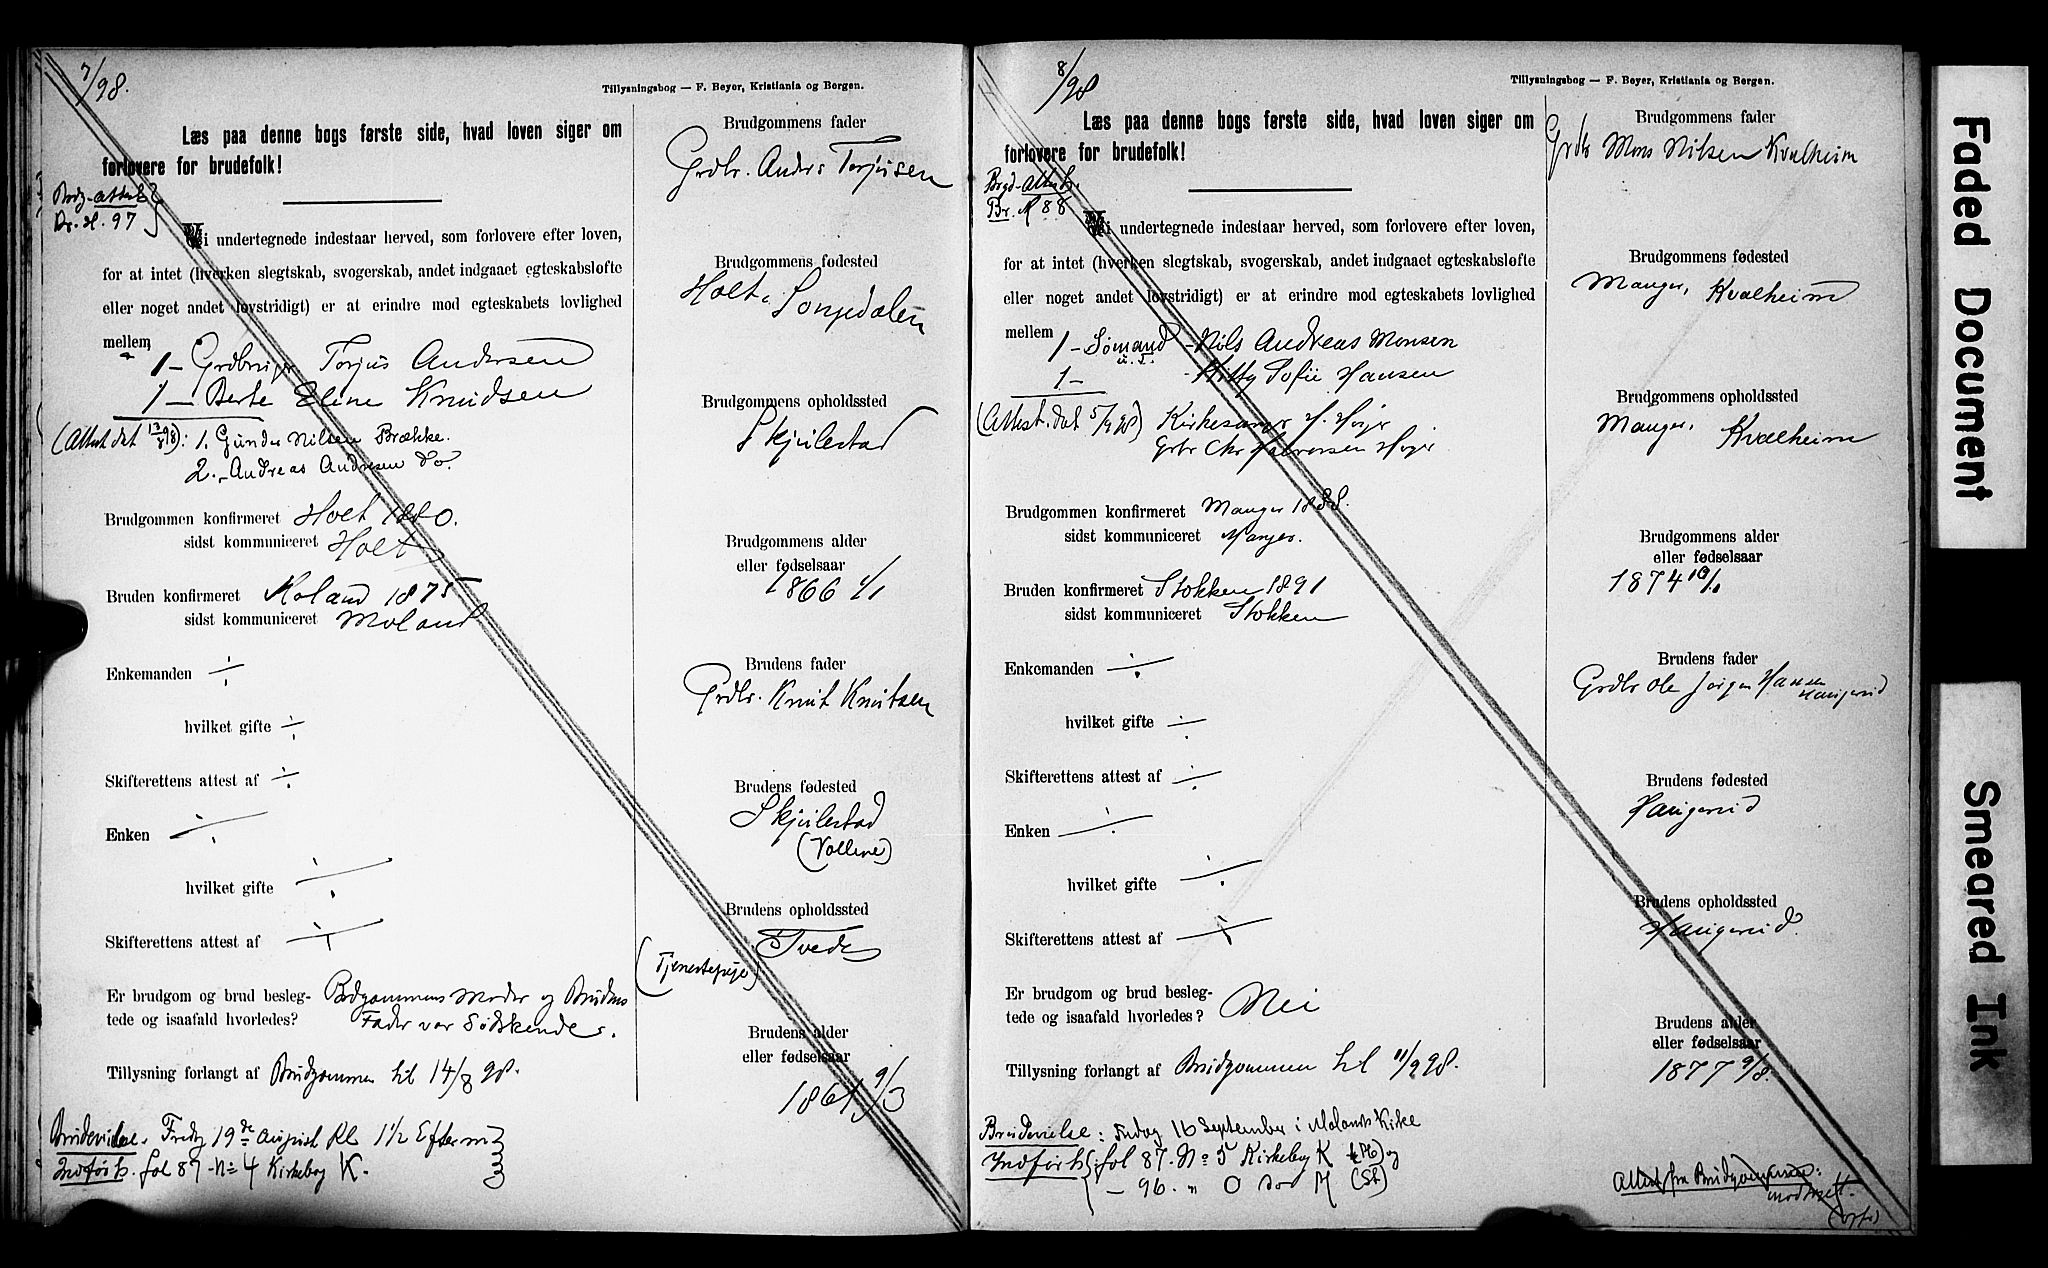 7/98.
Tillysningsbog — F. Beyer, Kristiania og Bergen.
Læs paa denne bogs første side, hvad loven siger om
forlovere for brudefolk!
Vi undertegnede indestaar herved, som forlovere efter loven,
for at intet (hverken slegtskab, svogerskab, andet indgaaet egteskabsløfte
eller noget andet lovstridigt) er at erindre mod egteskabets lovlighed
mellem
1 - Grdbruger Torjus Andersen
1 - Berte Eline Knudsen
(Attest dat 13/8 98): 1. Gunder Nilsen Brække.
2. Andreas Andresen do.
Brudgommen konfirmeret Holt 1880.
sidst kommuniceret Holt
Bruden konfirmeret Moland 1875
sidst kommuniceret Moland
Enkemanden ÷
hvilket gifte ÷
Skifterettens attest af ÷
Enken ÷
hvilket gifte ÷
Skifterettens attest af ÷
Er brudgom og brud besleg- Brdgommens Moder og Brudens
tede og isaafald hvorledes? Fader var Sødskende.
Tillysning forlangt af Brudgommen til 14/8 98.
Brudevielse. Fredag 19de August Kl 1½ Efterm
Indført. fol 87 No 4 Kirkebog K.
Brudgommens fader
Grdbr. Anders Torjusen
Brudgommens fødested
Holt, Songedalen
Brudgommens opholdssted
Skjulestad
Brudgommens alder
eller fødselsaar
1866 4/1
Brudens fader
Grdbr. Knut Knutsen
Brudens fødested
Skjulestad
(Vollene)
Brudens opholdssted
Tvede
(Tjenestepige)
Brudens alder
eller fødselsaar
1861 9/3
8/98
Tillysningsbog — F. Beyer, Kristiania og Bergen.
Læs paa denne bogs første side, hvad loven siger om
forlovere for brudefolk!
Vi undertegnede indestaar herved, som forlovere efter loven,
for at intet (hverken slegtskab, svogerskab, andet indgaaet egteskabsløfte
eller noget andet lovstridigt) er at erindre mod egteskabets lovlighed
mellem
1 - Sømand - Nils Andreas Monsen
1 - Kitty Sofie Hansen
(Attest. dat 5/9 98) Kirkesanger H. Høyer
Grbr Chr Halvorsen Høyer
Brudgommen konfirmeret Manger 1888.
sidst kommuniceret Manger.
Bruden konfirmeret Stokken 1891
sidst kommuniceret Stokken
Enkemanden ÷
hvilket gifte ÷
Skifterettens attest af ÷
Enken ÷
hvilket gifte ÷
Skifterettens attest af ÷
Er brudgom og brud besleg-
tede og isaafald hvorledes? Nei
Tillysning forlangt af Brudgommen til 11/9 98.
Brudevielse: Fredag 16 September i Molands Kirke
Indført fol 87. No 5 Kirkebog K (Mo) og
— 96. " 0 do M (St)
Brudgommens fader
Grdbr Mons Nilsen Kvalheim
Brudgommens fødested
Manger, Kvalheim
Brudgommens opholdssted
Manger, Kvalheim
Brudgommens alder
eller fødselsaar
1874
Brudens fader
Grdbr Ole Jørgen Hansen
Haugerud
Brudens fødested
Haugerud
Brudens opholdssted
Haugerud.
Brudens alder
eller fødselsaar
1877 9/8.
Attest fra Brudgommen:
modtaget.
Faded Document
Smeared Ink